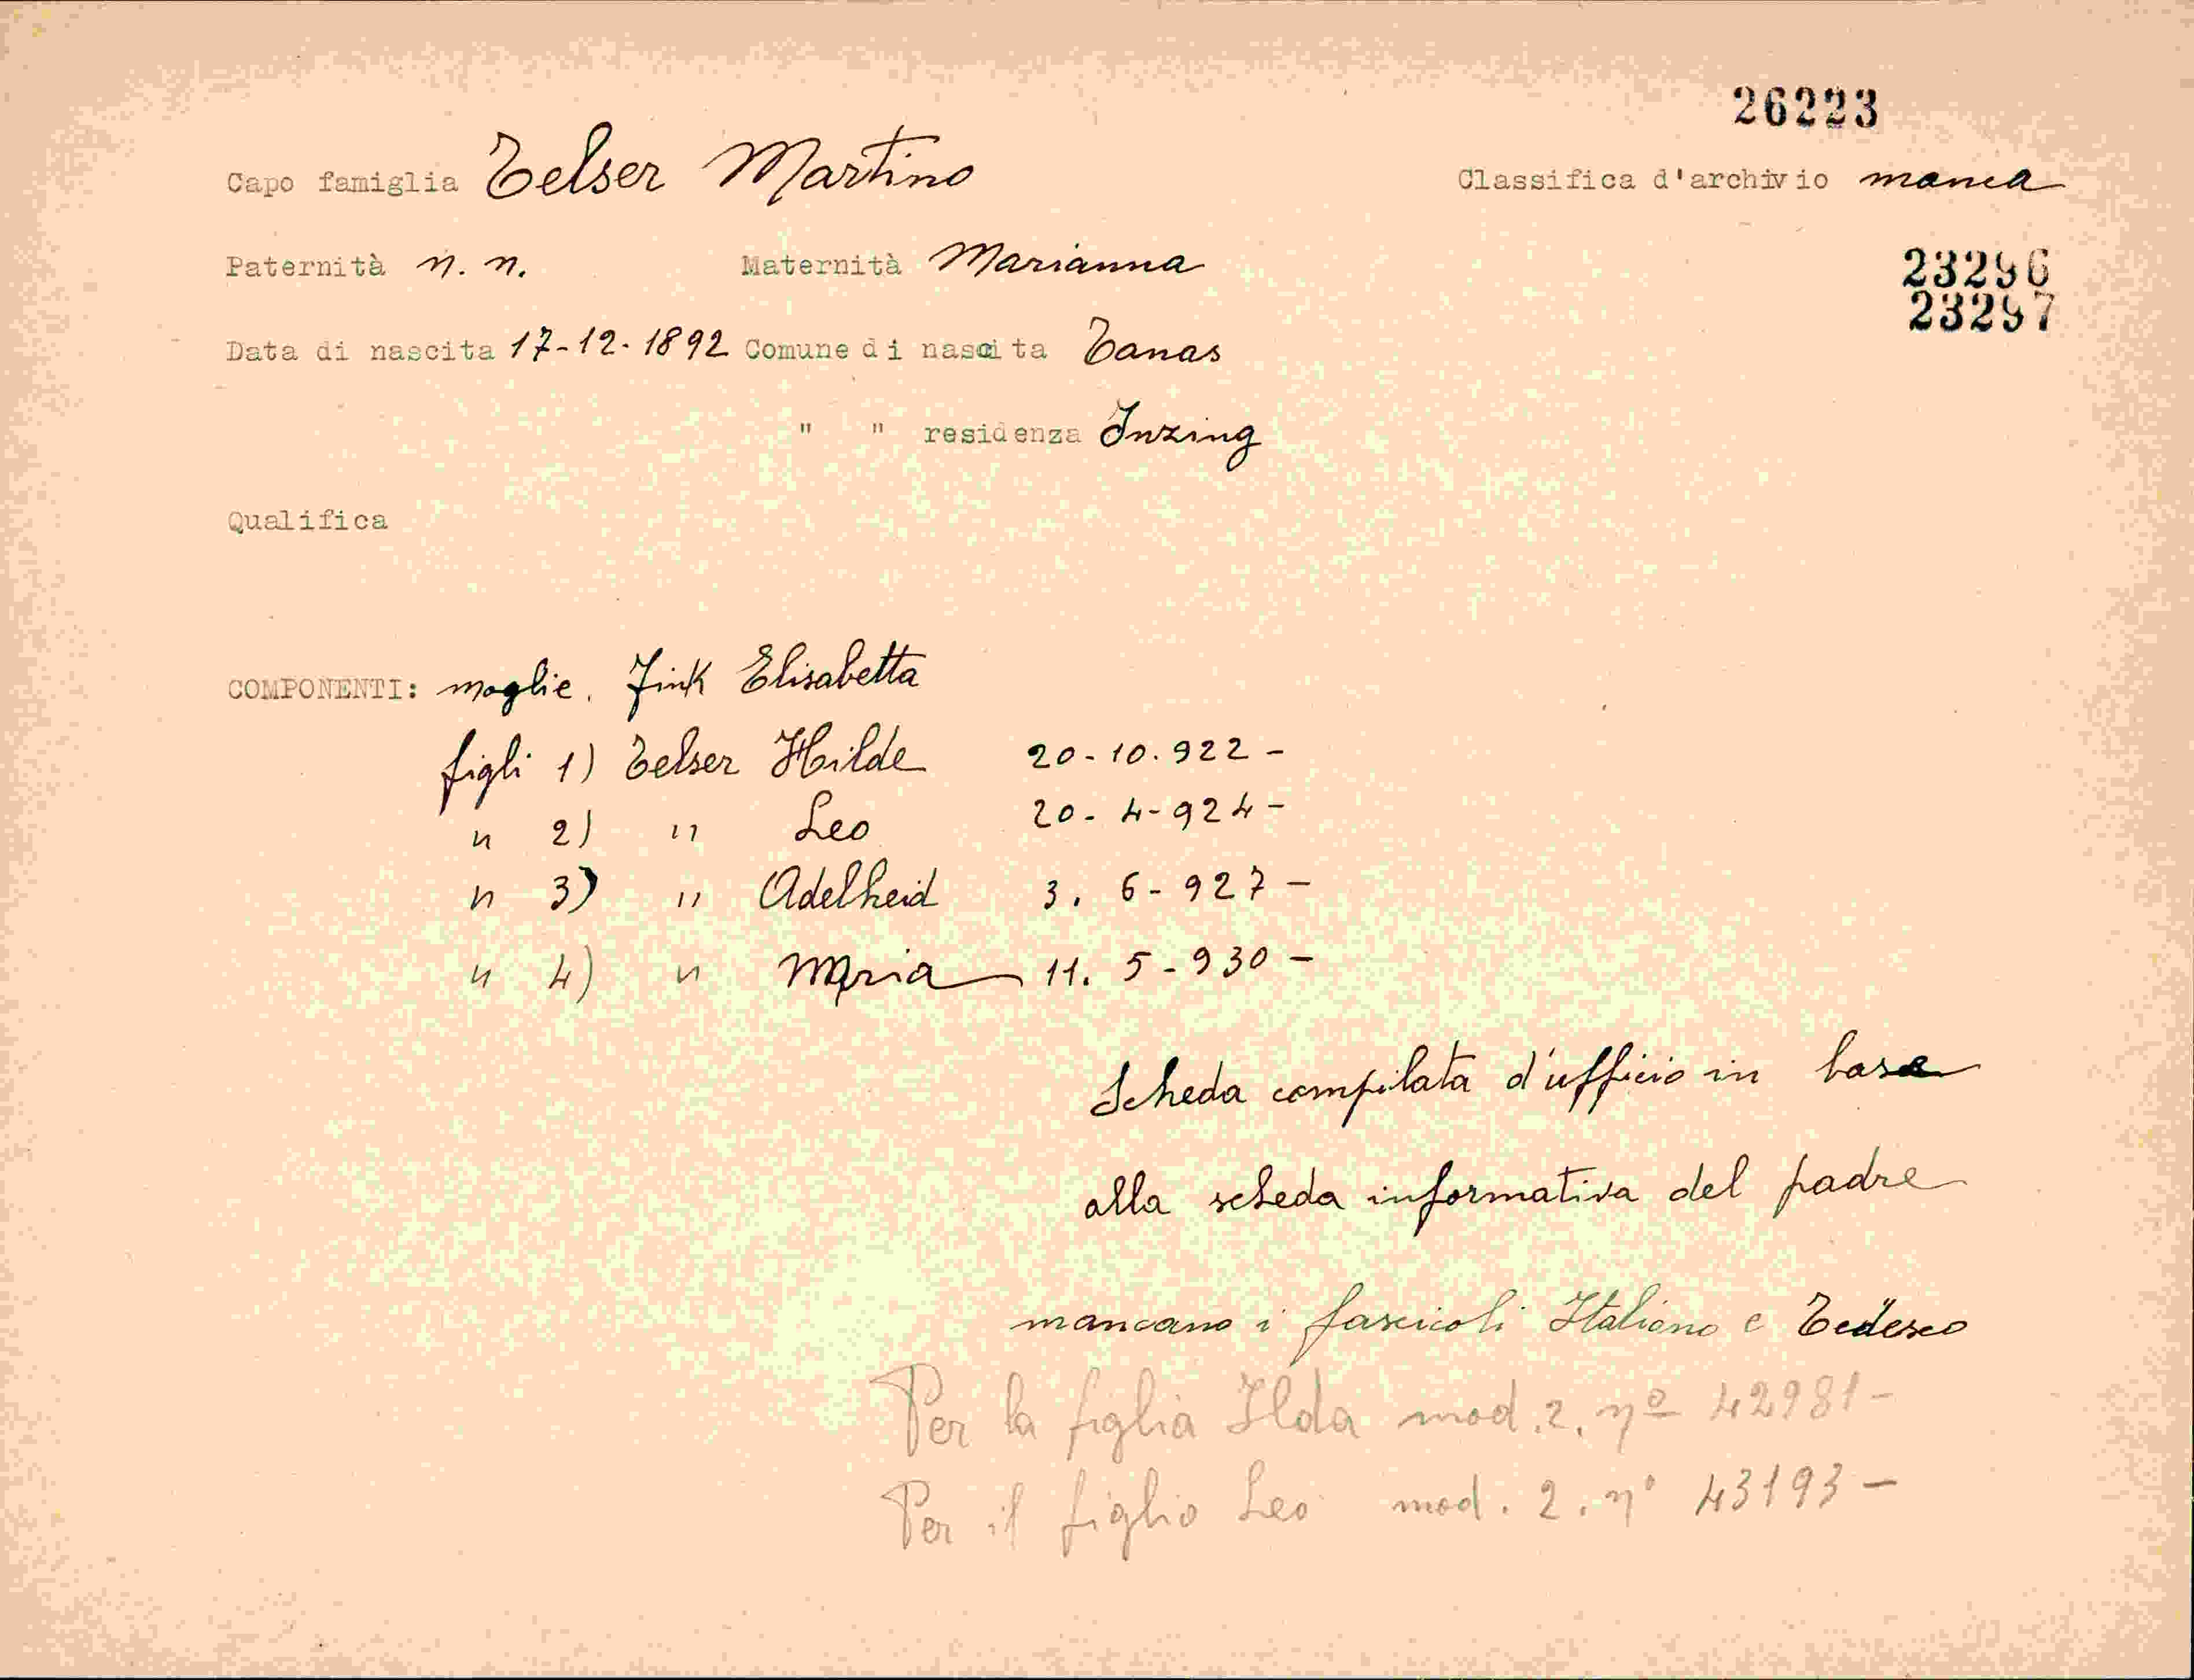 26223
Capo famiglia Telser Martino
Classifica d'archivio manca
Paternità n. n. Maternità Marianna
23296
23297
Data di nascita 17-12-1892 Comune di nascita Tanas
" " residenza Inzing
Qualifica
COMPONENTI: moglie. Fink Elisabetta
figli 1) Telser Hilde 20-10.922-
" 2) " Leo 20-4-924-
" 3) " Adelheid 3. 6-927-
" 4) " Maria 11. 5-930-
Scheda compilata d'ufficio in base
alla scheda informativa del padre
mancano i fascicoli Italiano e Tedesco
Per la figlia Ilda mod. 2. nº 42981-
Per il figlio Leo mod. 2. n° 43193-